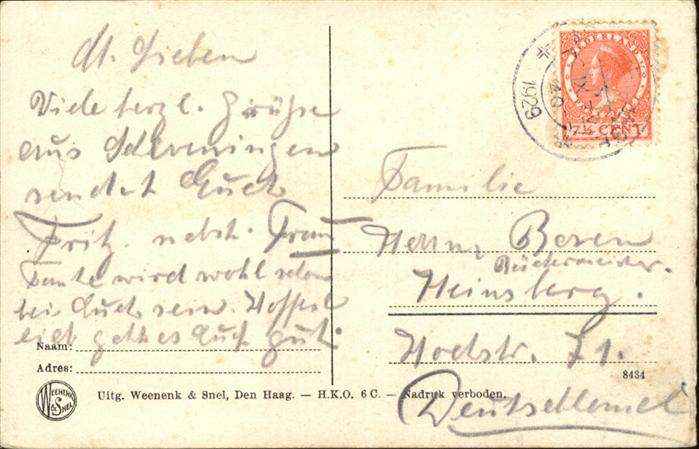 M. Lieben
Viele herzl. Grüße
aus Scheveningen
sendet Euch
Fritz nebst. Frau
Tante wird wohl schon
bei Euch sein. Hoffentl
geht es Euch gut.
Naam:
Adres:
WEENENK & SNEL
Uitg. Weenenk & Snel, Den Haag. — H.K.O. 6 C. — Nadruk verboden.
NEDERLAND
7½ CENT
1929
Familie
Herm. Beren
Bäckermeister.
Heinsberg.
Hochstr. 71.
8434
Deutschland